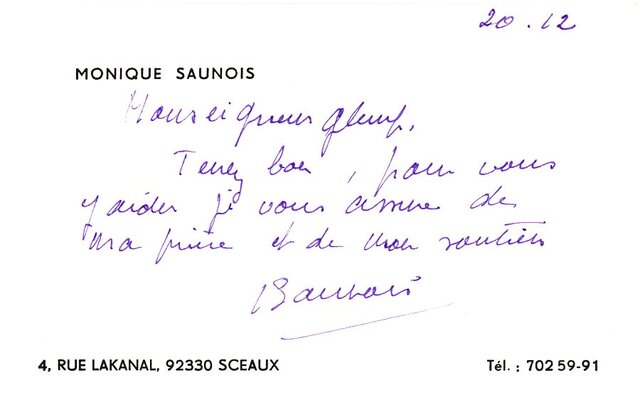 20.12
MONIQUE SAUNOIS
Monseigneur Glemp,
Tenez bon, pour vous
y aider je vous assure de
ma prière et de mon soutien
Saunois
4, RUE LAKANAL, 92330 SCEAUX
Tél. : 702 59-91